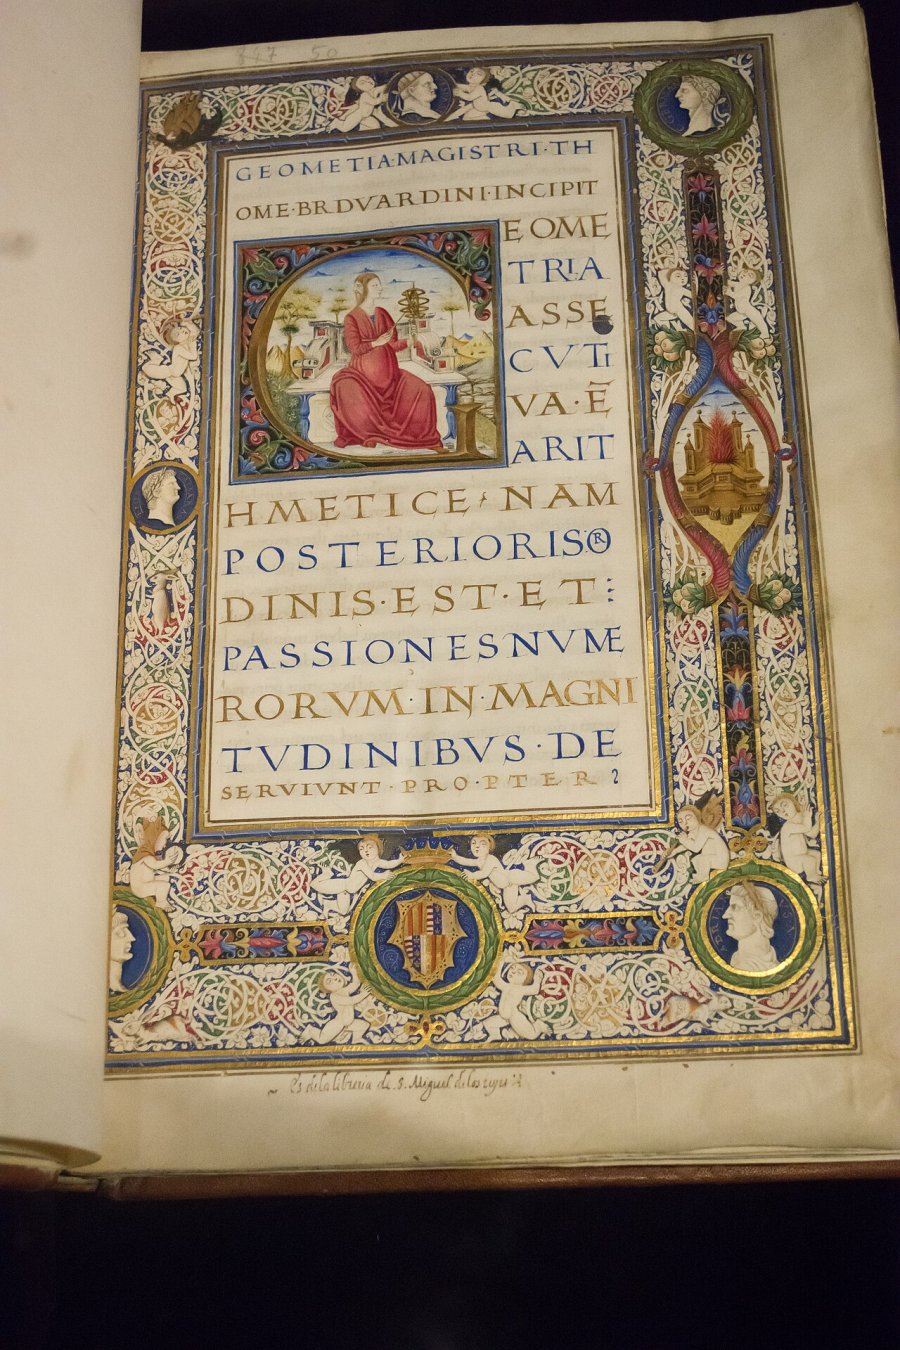 847 50
GEOMETIA·MAGISTRI·TH
OME·BRDVARDINI·INCIPIT
GEOME
TRIA
ASSE
CVTI
VA·Ē
ARIT
HMETICE·NAM
POSTERIORIS OR
DINIS·EST·ET:
PASSIONES NVMÆ
RORVM·IN·MAGNI
TVDINIBVS·DE
SERVIVNT·PROPTER
Es de la libreria de S. Miguel de los reyes